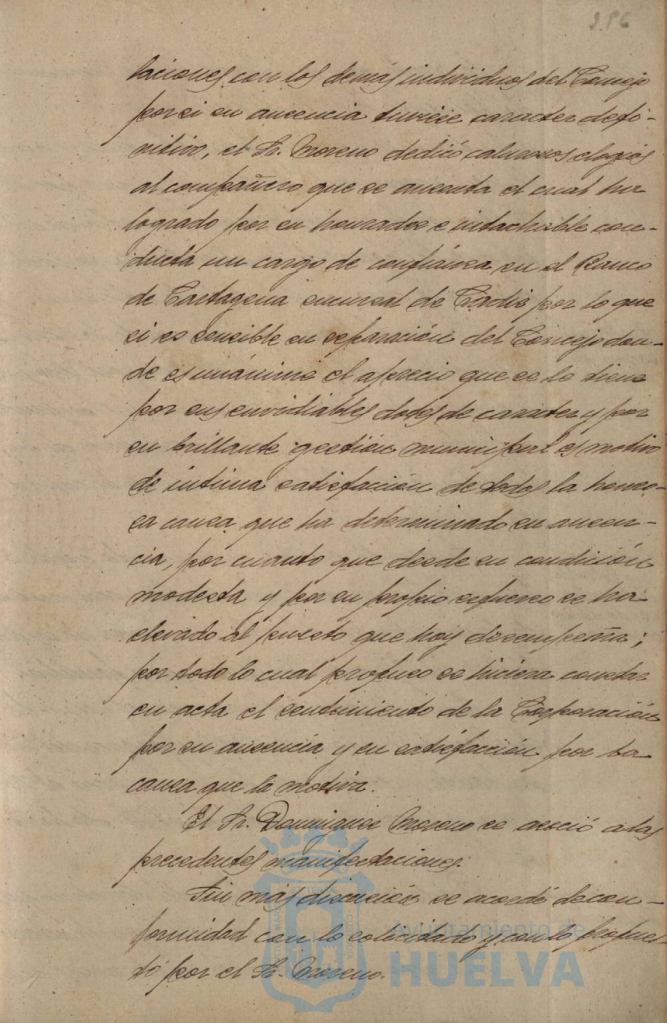 196
laciones con los demás individuos del Concejo
por si su ausencia tuviese caracter defi-
nitivo, el Sr. Moreno dedicó calurosos elogios
al compañero que se ausenta el cual ha
logrado por su honradez e intachable con-
ducta un cargo de confianza en el Banco
de Cartagena sucursal de Cadiz por lo que
si es sensible su separación del Concejo don-
de es unánime el aprecio que se le tiene
por sus envidiables dotes de caracter y por
su brillante gestión municipal es motivo
de íntima satisfacción de todos la honro-
sa causa que ha determinado su ausen-
cia, por cuanto que desde su condición
modesta y por su propio esfuerzo se ha
elevado al puesto que hoy desempeña;
por todo lo cual propuso se hiciera constar
en acta el sentimiento de la Corporación
por su ausencia y su satisfacción por la
causa que la motiva.
El Sr. Dominguez Moreno se asoció a las
precedentes manifestaciones.
Sin más discusión se acordó de con-
formidad con lo solicitado y con lo propues-
to por el Sr. Moreno.
Ayuntamiento de
HUELVA